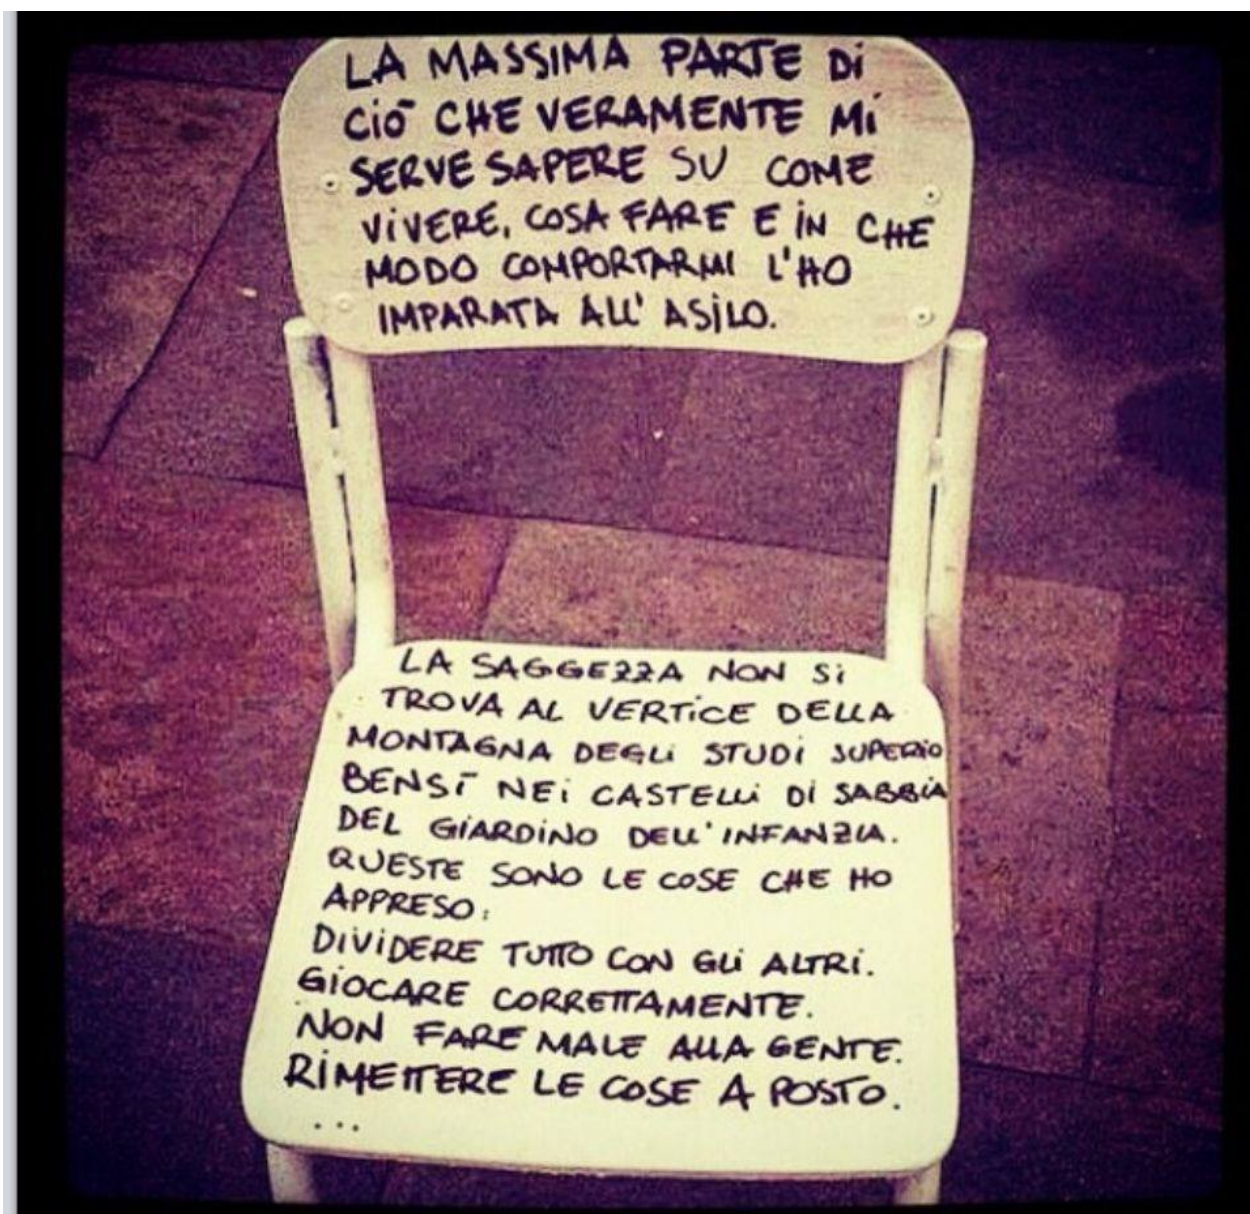 LA MASSIMA PARTE Di
CiÒ CHE VERAMENTE Mi
SERVE SAPERE SU COME
ViVERE, COSA FARE E iN CHE
MODO COMPORTARMI L'HO
IMPARATA ALL' ASiLO.
LA SAGGEZZA NON Si
TROVA AL VERTiCE DELLA
MONTAGNA DEGLi STUDi SUPERIO
BENSÌ NEi CASTELLi Di SABBIA
DEL GiARDiNO DELL'INFANZIA.
QUESTE SONO LE COSE CHE HO
APPRESO:
DiViDERE TUTTO CON GLi ALTRi.
GiOCARE CORRETTAMENTE.
NON FARE MALE ALLA GENTE.
RiMETTERE LE COSE A POSTO.
...